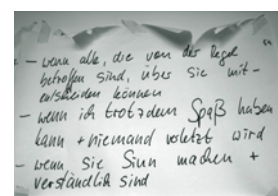 - wenn alle, die von der Regel
betroffen sind, über sie mit-
entscheiden können
- wenn ich trotzdem Spaß haben
kann + niemand verletzt wird
- wenn sie Sinn machen +
verständlich sind